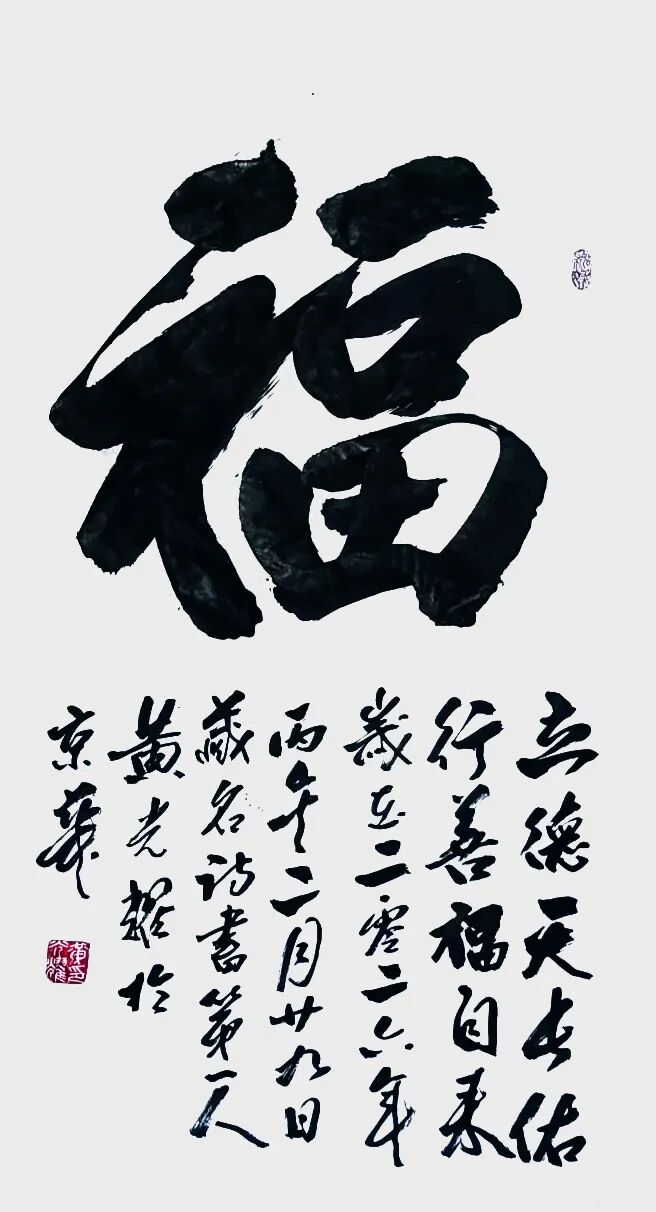 福
立德天长佑
行善福自来
歲在二零二六年
丙午二月廿九日
藏名诗書第一人
黄光耀於
京華